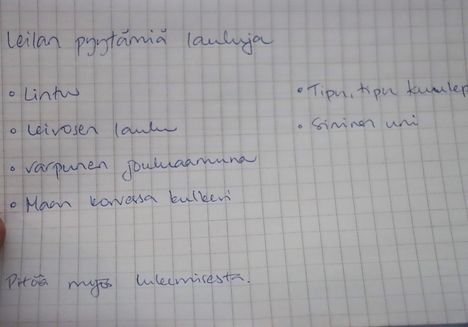 Leilan pyytämiä lauluja
• Lintu
• Leivosen laulu
• varpunen jouluaamuna
• Maan korvessa kulkevi
• Tipu, tipu kuulep
• Sininen uni
Pitää myös lukemisesta.